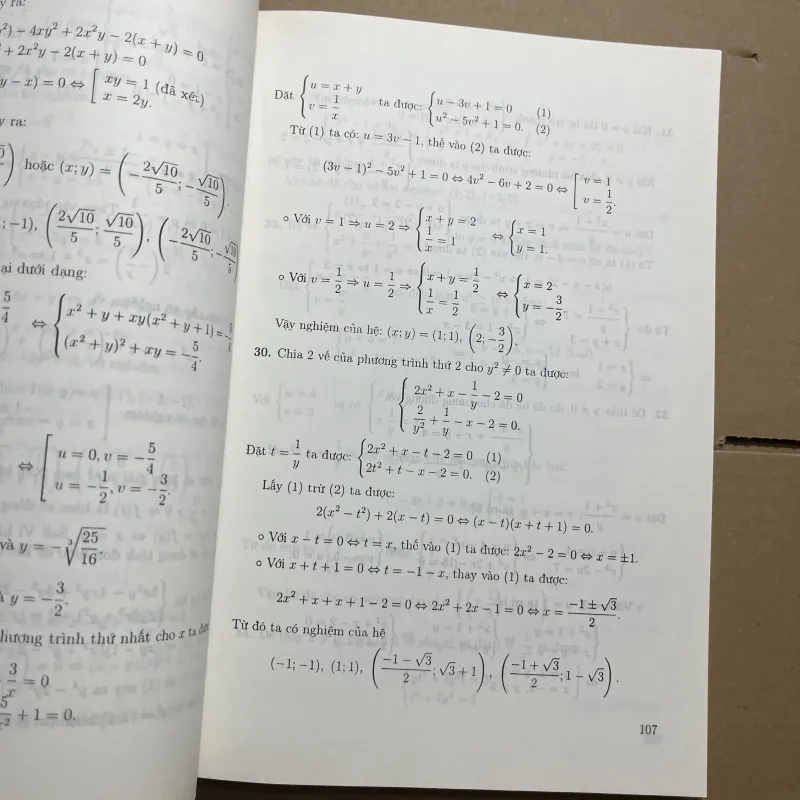 y ra:
y²) − 4xy² + 2x²y − 2(x + y) = 0
² + 2x²y − 2(x + y) = 0
y − x) = 0 ⇔ [ xy = 1 (đã xét)
x = 2y.
y ra:
hoặc (x; y) = ( −2√10/5 ; −√10/5 ).
; −1), ( 2√10/5 ; √10/5 ), ( −2√10/5 ; −√10/5 )
ại dưới dạng:
5/4 ⇔ { x² + y + xy(x² + y + 1) = −5/4
(x² + y)² + xy = −5/4.
⇔ [ u = 0, v = −5/4
u = −1/2, v = −3/2.
và y = −∛(25/16).
à y = −3/2.
hương trình thứ nhất cho x ta
3/x = 0
+ 1 = 0.
Đặt { u = x + y
v = 1/x
ta được: { u − 3v + 1 = 0 (1)
u² − 5v² + 1 = 0. (2)
Từ (1) ta có: u = 3v − 1, thế vào (2) ta được:
(3v − 1)² − 5v² + 1 = 0 ⇔ 4v² − 6v + 2 = 0 ⇔ [ v = 1
v = 1/2.
∘ Với v = 1 ⇒ u = 2 ⇒ { x + y = 2
1/x = 1
⇔ { x = 1
y = 1.
∘ Với v = 1/2 ⇒ u = 1/2 ⇒ { x + y = 1/2
1/x = 1/2
⇔ { x = 2
y = −3/2.
Vậy nghiệm của hệ: (x; y) = (1; 1), ( 2; −3/2 ).
30. Chia 2 vế của phương trình thứ 2 cho y² ≠ 0 ta được:
{ 2x² + x − 1/y − 2 = 0
2/y² + 1/y − x − 2 = 0.
Đặt t = 1/y ta được: { 2x² + x − t − 2 = 0 (1)
2t² + t − x − 2 = 0. (2)
Lấy (1) trừ (2) ta được:
2(x² − t²) + 2(x − t) = 0 ⇔ (x − t)(x + t + 1) = 0.
∘ Với x − t = 0 ⇔ t = x, thế vào (1) ta được: 2x² − 2 = 0 ⇔ x = ±1.
∘ Với x + t + 1 = 0 ⇔ t = −1 − x, thay vào (1) ta được:
2x² + x + x + 1 − 2 = 0 ⇔ 2x² + 2x − 1 = 0 ⇔ x = (−1 ± √3)/2.
Từ đó ta có nghiệm của hệ
(−1; −1), (1; 1), ( (−1 − √3)/2 ; √3 + 1 ), ( (−1 + √3)/2 ; 1 − √3 ).
107